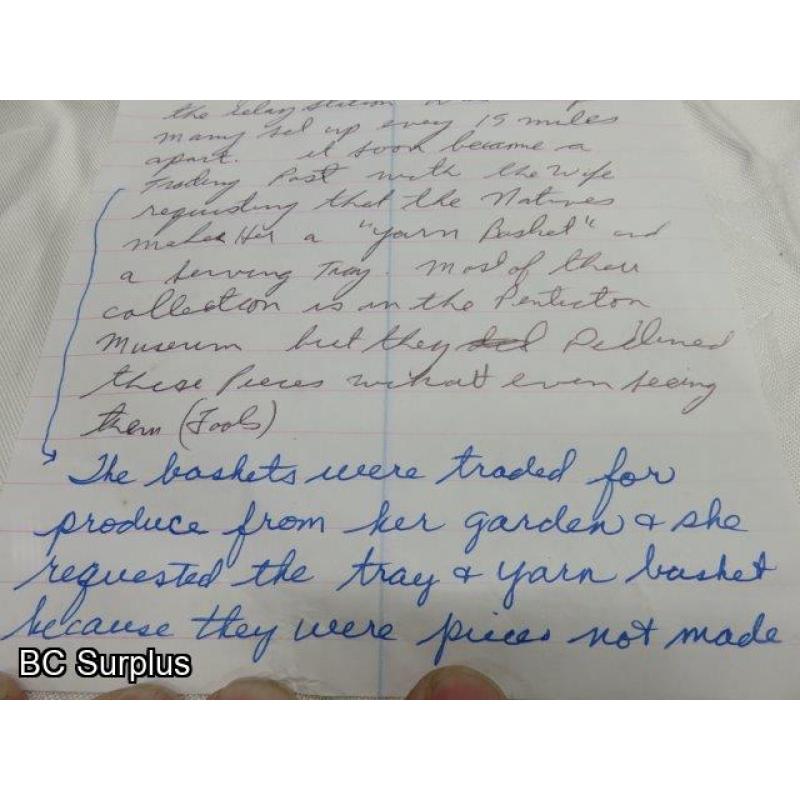 the relay station was
many set up every 15 miles
apart. it soon became a
Trading Post with the wife
requesting that the Natives
make Her a "yarn Basket" and
a serving Tray. Most of their
collection is in the Penticton
Museum but they did Declined
these Pieces without even seeing
them (Fools)
The baskets were traded for
produce from her garden & she
requested the tray & yarn basket
because they were pieces not made
BC Surplus